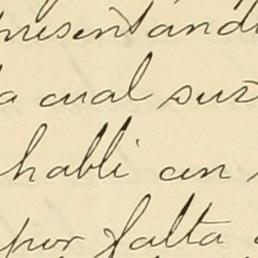 presentand
a cual sur
habli en
por falta